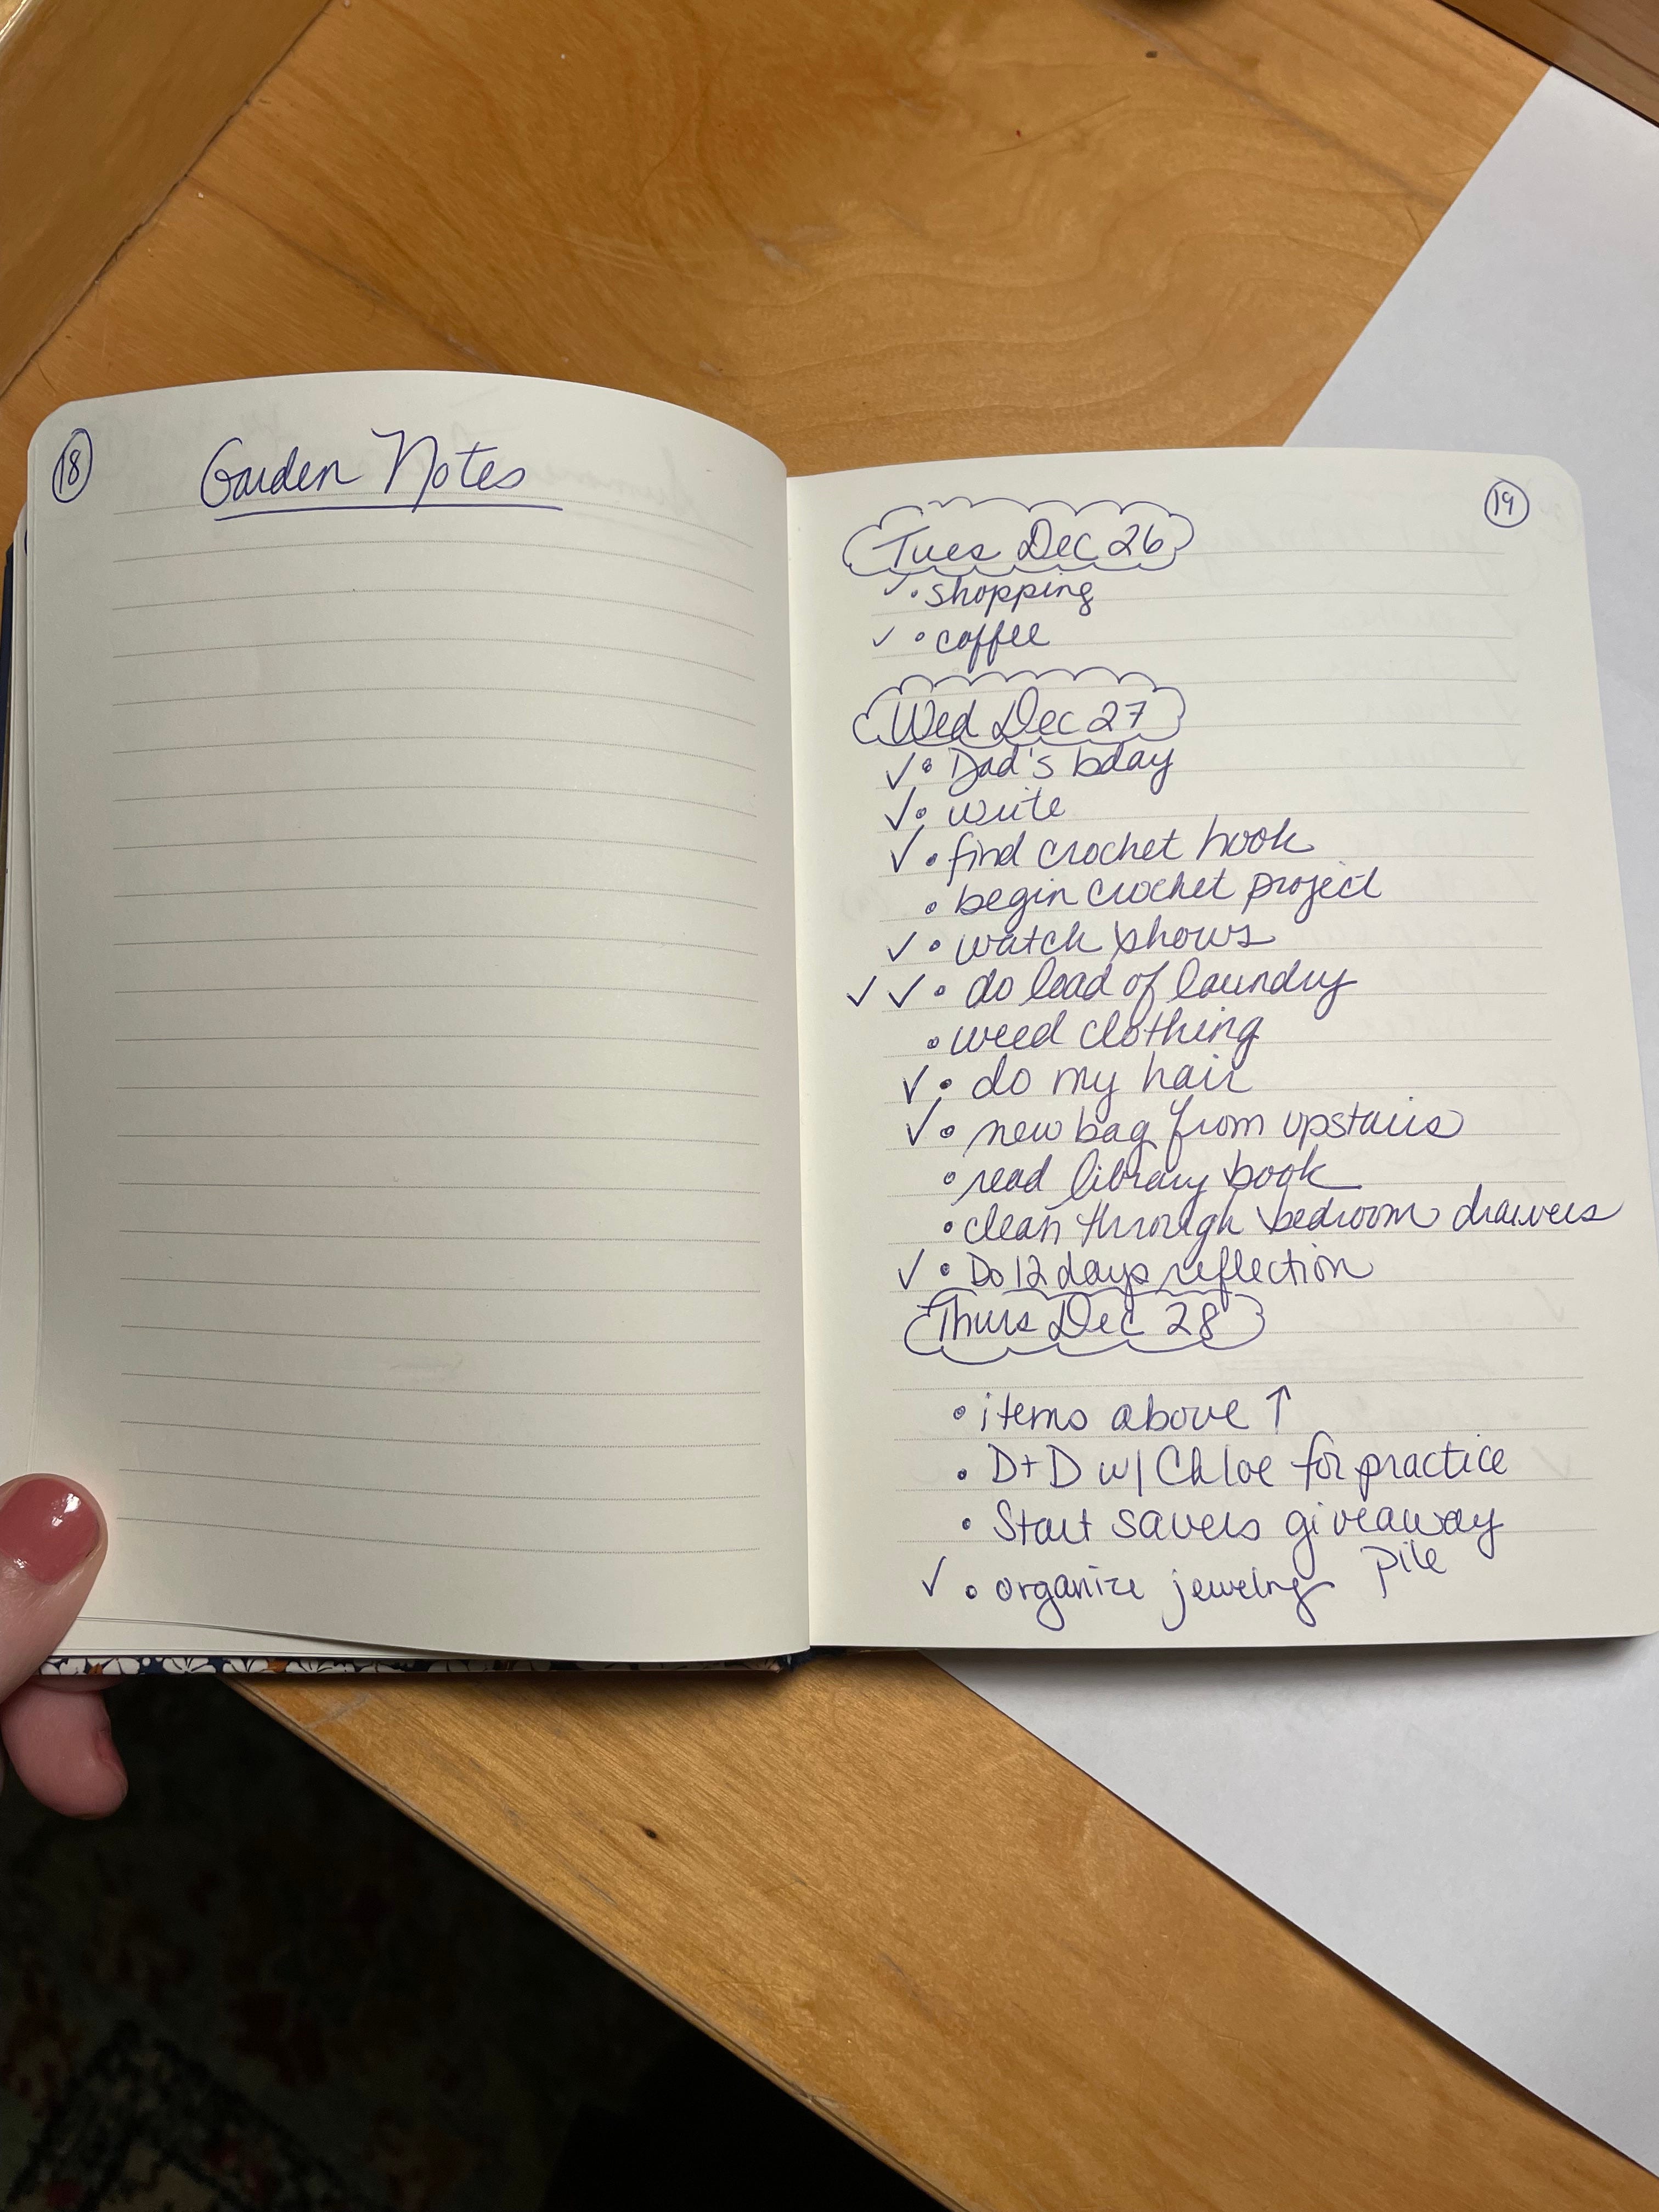 18
Garden Notes
19
Tues Dec 26
✓ • shopping
✓ • coffee
Wed Dec 27
✓ • Dad's bday
✓ • write
✓ • find crochet hook
• begin crochet project
✓ • watch shows
✓ ✓ • do load of laundry
• weed clothing
✓ • do my hair
✓ • new bag from upstairs
• read library book
• clean through bedroom drawers
✓ • Do 12 days reflection
Thurs Dec 28
• items above ↑
• D+D w/ Chloe for practice
• Start savers giveaway
pile
✓ • organize jewelry